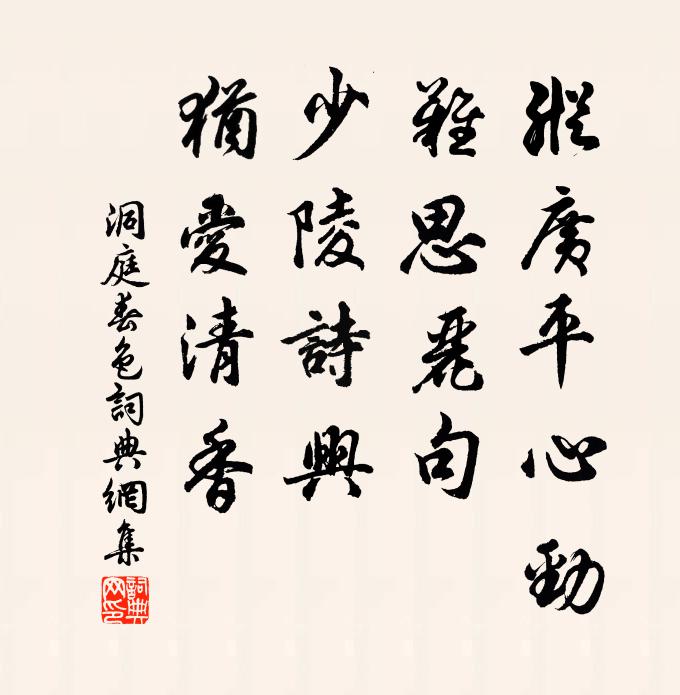 縱廣平心勁
難思麗句
少陵詩興
猶愛清香
洞庭春色詞典網集
詞典
网印